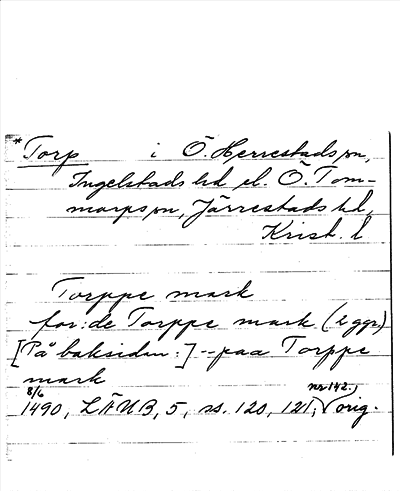 *Torp i Ö. Herrestads sn,
Ingelstads hd el. Ö. Tom-
marps sn, Järrestads hd,
Krist. l
Torppe mark
for:de Torppe mark (2 ggr)
[På baksidan:] -- paa Torppe
mark
8/6 1490, LÄUB, 5, s. 120, 121, nr 142, orig.